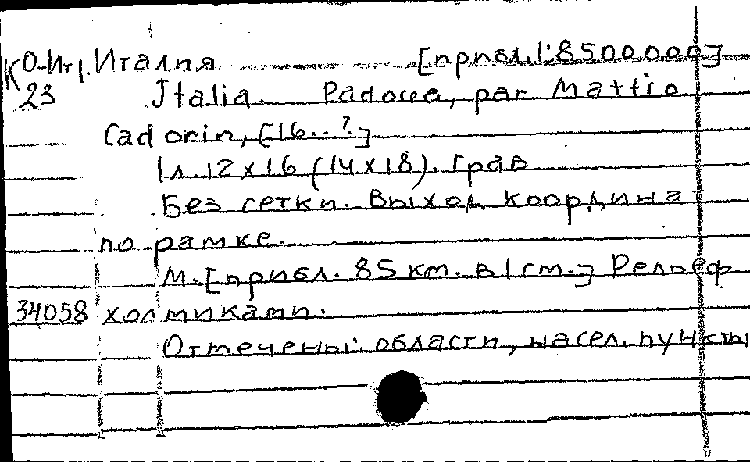 КО-Ит/23 Италия [прибл. 1:8500000]
Italia. Padoue, par Mattio
Cadorin, [16..?]
1 л. 12 x 16 (14 x 18). Грав
Без сетки. Выход координа
по рамке.
М. [прибл. 85 км. в 1 см.] Рельеф
34058 холмиками.
Отмечены: области, насел. пункты